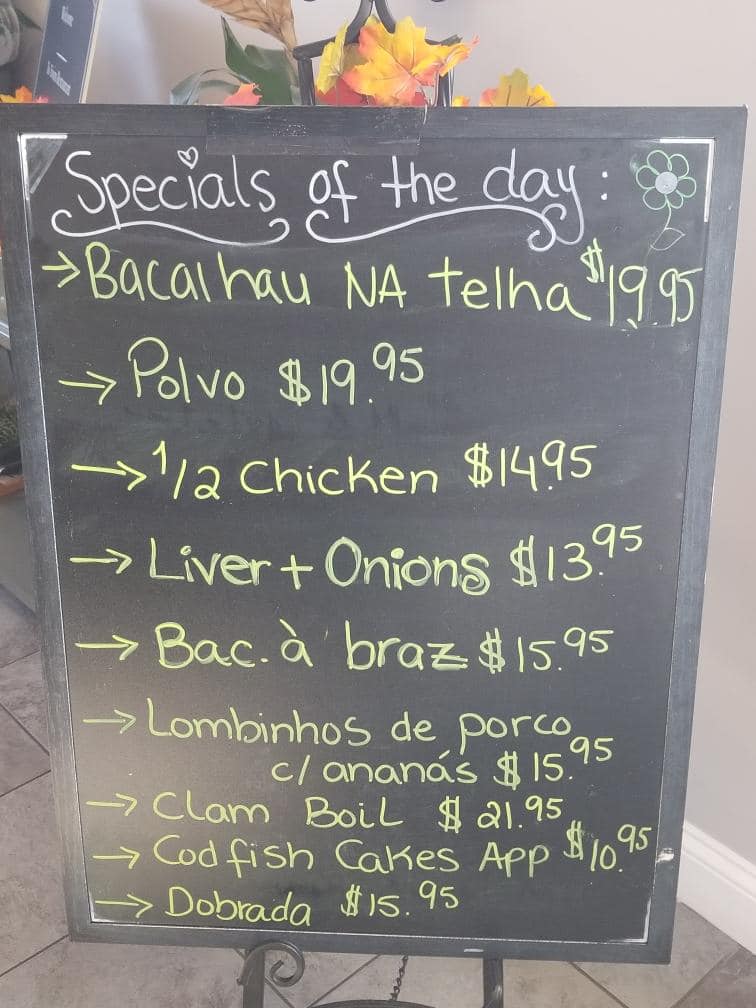 Specials of the day:
→Bacalhau NA telha $19.95
→ Polvo $19.95
→ 1/2 Chicken $14.95
→ Liver + Onions $13.95
→ Bac. à braz $15.95
→ Lombinhos de porco
c/ ananás $15.95
→ Clam Boil $21.95
→ Codfish Cakes App $10.95
→ Dobrada $15.95